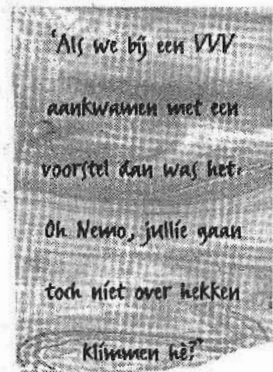 'Als we bij een VVV
aankwamen met een
voorstel dan was het:
Oh Nemo, jullie gaan
toch niet over hekken
klimmen hè?'